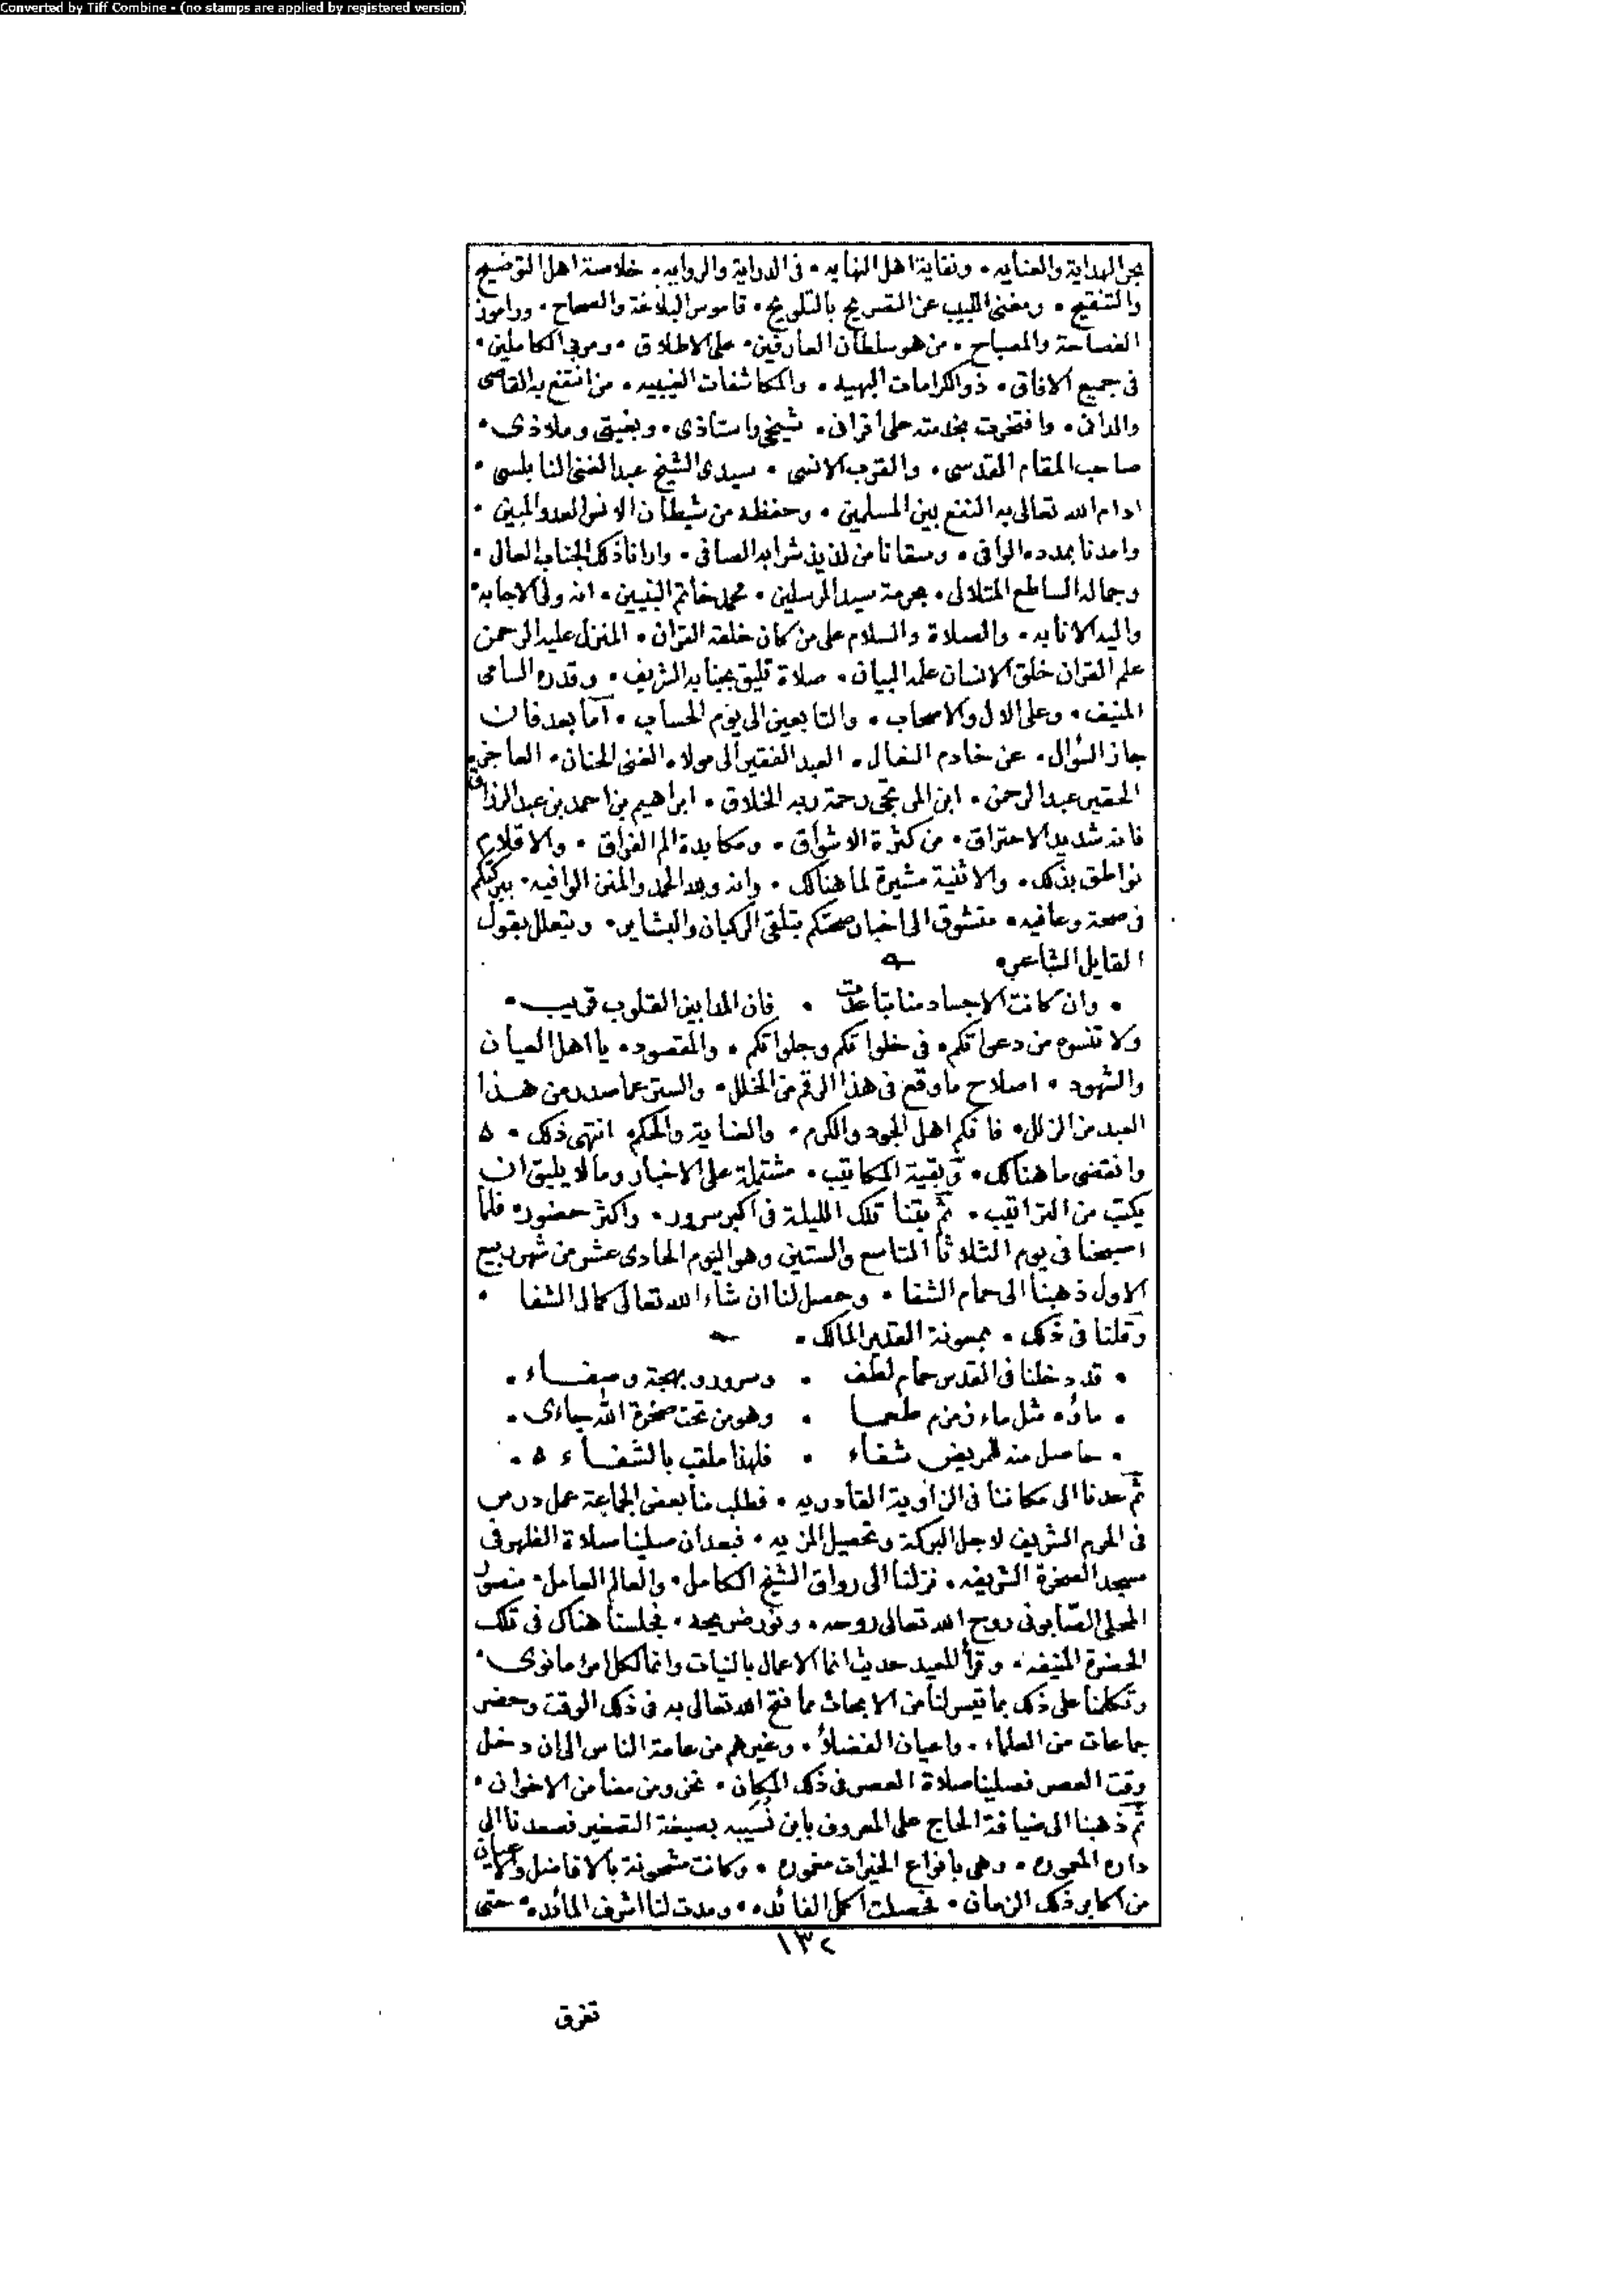 Converted by Tiff Combine - (no stamps are applied by registered version)
بحر الهداية والعنايه • ونقاية اهل النهايه • فى الدراية والروايه • خلاصة اهل التوضيح
والتنقيح • ومغنى اللبيب عن التصريح بالتلويح • قاموس البلاغة والصحاح • وراموز
الفصاحة والمصباح • من هو سلطان العارفين • على الاطلاق • ومربى الكاملين •
فى جميع الافاق • ذو الكرامات البهيه • والمكاشفات الغيبيه • من انتفع به القاصى
والدانى • وافتخرت بخدمته على اقرانى • شيخى واستاذى • وبغيتى وملاذى •
صاحب المقام القدسى • والقرب الانسى • سيدى الشيخ عبد الغنى النابلسى •
ادام الله تعالى به النفع بين المسلمين • وحفظه من شيطان الانس العدو المبين •
وامدنا بمدده الوافى • وسقانا من لذيذ شرابه الصافى • وارانا ذلك الجناب العالى •
وجماله الساطع المتلالى • بحرمة سيد المرسلين • محمد خاتم النبيين • انه ولى الاجابه •
واليه الانابه • والصلاة والسلام على من كان خلقه القران • المنزل عليه الرحمن
علم القران خلق الانسان علمه البيان • صلاة تليق بجنابه الشريف • وقدره السامى
المنيف • وعلى الال والاصحاب • والتابعين الى يوم الحساب • اما بعد فان
جاز السؤال • عن خادم النعال • العبد الفقير الى مولاه الغنى الحنان • العاجز
الحقير عبد الرحمن • ابن المرتجى رحمة ربه الخلاق • ابراهيم بن احمد بن عبد الرزاق
فانه شديد الاحتراق • من كثرة الاشواق • ومكابدة الم الفراق • والاقلام
نواطق بذلك • والاثنية مشيرة لما هنالك • وانه ولله الحمد والمنن الوافيه • ببركتكم
فى صحة وعافيه • متشوق الى اخبار صحتكم بتلقى الركبان والبشاير • ويتعلل بقول
القايل الشاعر •
• وان كانت الاجساد منا تباعدت • فان المدا بين القلوب قريب •
ولا تنسوه من دعواتكم • فى خلواتكم وجلواتكم • والمقصود • يا اهل العيان
والشهود • اصلاح ما وقع فى هذا الرقم من الخلل • والستر عما صدر من هذا
العبد من الزلل • فانكم اهل الجود والكرم • والعناية والحكم • انتهى ذلك • ه
وانقضى ما هنالك • وبقية المكاتيب • مشتملة على الاخبار وما لا يليق ان
يكتب من التراتيب • ثم بتنا تلك الليلة فى اكبر سرور • واكثر حضور • فلما
اصبحنا فى يوم الثلاثا التاسع والستين وهو اليوم الحادى عشر من شهر ربيع
الاول ذهبنا الى حمام الشفا • وحصل لنا ان شاء الله تعالى كمال الشفا •
وقلنا فى ذلك • بمعونة القدير المالك •
• قد دخلنا فى القدس حمام لطف • وسرور وبهجة وصفاء •
• ماؤه مثل ماء زمزم طعما • وهو من تحت صخرة الله جاءى •
• حاصل منه للمريض شفاء • فلهذا ملقب بالشفاء ه •
ثم عدنا الى مكاننا فى الزاوية القادريه • فطلب منا بعض الجماعة عمل درس
فى الحرم الشريف لاجل البركة وتحصيل المزيه • فبعد ان صلينا صلاة الظهر فى
مسجد الصخرة الشريفه • نزلنا الى رواق الشيخ الكامل • والعالم العامل • منصور
المحلى الصابونى روح الله تعالى روحه • ونور ضريحه • فجلسنا هناك فى تلك
الحضرة المنيفه • وقرأ المعيد حديث انما الاعمال بالنيات وانما لكل امرء ما نوى •
وتكلمنا على ذلك بما تيسر لنا من الابحاث مما فتح الله تعالى به فى ذلك الوقت وحضر
جماعات من العلماء • واعيان الفضلاء • وغيرهم من عامة الناس الى ان دخل
وقت العصر فصلينا صلاة العصر فى ذلك المكان • نحن ومن معنا من الاخوان •
ثم ذهبنا الى ضيافة الحاج على المعروف بابن نسيبه بصيغة التصغير فصعدنا الى
داره المعموره • وهى بانواع الخيرات مغموره • وكانت مشحونة بالافاضل والاعيان
من اكابر ذلك الزمان • فحصلت اكمل الفائده • ومدت لنا اشرف المائده • حتى
١٣٢
تفرق